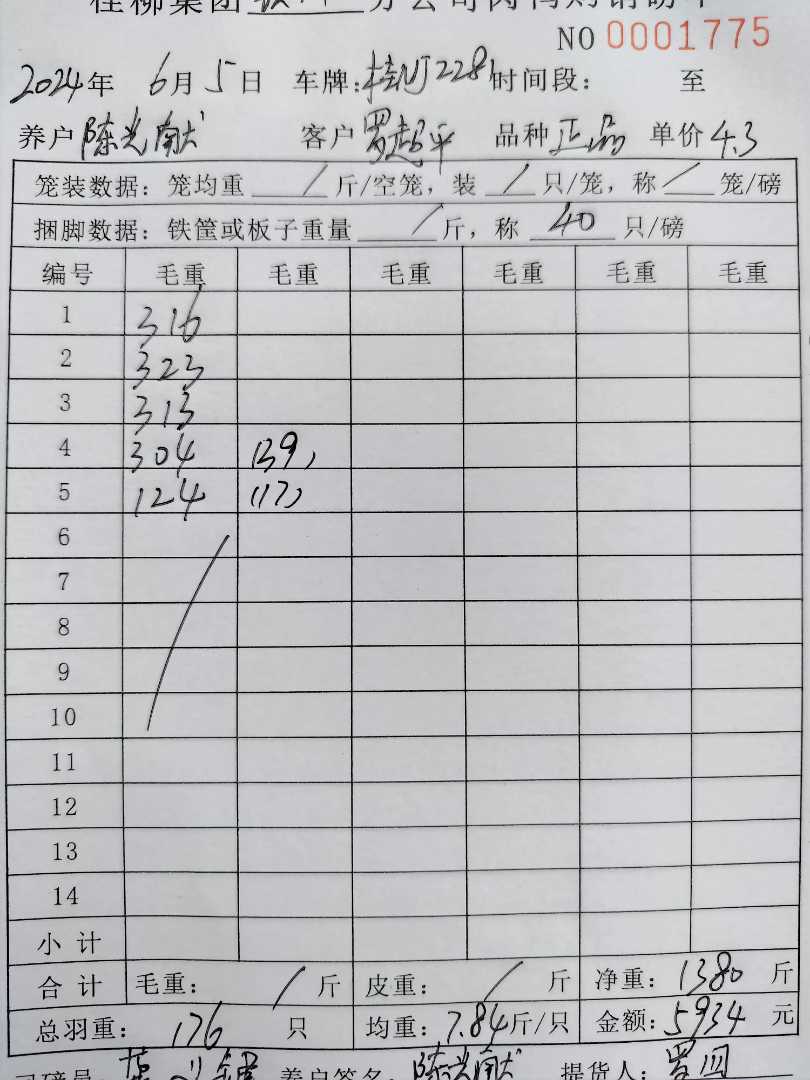 桂柳集团 分公司肉鸭购销磅单
NO 0001775
2024年 6月5日 车牌:桂NJ2281 时间段: 至
养户 陈光献 客户 罗超平 品种 正品 单价 4.3
笼装数据:笼均重 / 斤/空笼,装 / 只/笼,称 / 笼/磅
捆脚数据:铁筐或板子重量 / 斤,称 40 只/磅
编号 毛重 毛重 毛重 毛重 毛重 毛重
1 316
2 323
3 313
4 304 (39)
5 124 (17)
6
7
8
9
10
11
12
13
14
小计
合计 毛重: / 斤 皮重: / 斤 净重: 1380 斤
总羽重: 176 只 均重: 7.84斤/只 金额: 5934 元
司磅员: 养户签名: 陈光献 提货人: 罗四